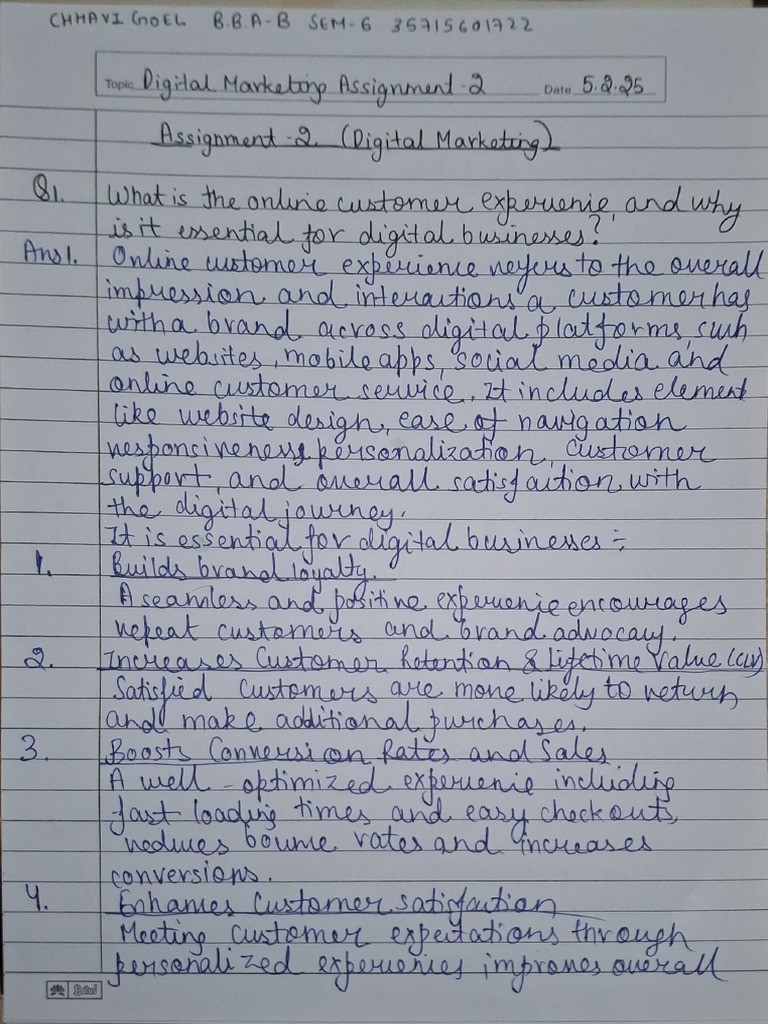 CHHAVI GOEL B.B.A-B SEM-6 35715601722
Topic Digital Marketing Assignment-2 Date 5.2.25
Assignment-2 (Digital Marketing)
Q1. What is the online customer experience, and why
is it essential for digital businesses?
Ans1. Online customer experience refers to the overall
impression and interactions a customer has
with a brand across digital platforms, such
as websites, mobile apps, social media and
online customer service. It includes element
like website design, ease of navigation
responsiveness, personalization, customer
support, and overall satisfaction with
the digital journey.
It is essential for digital businesses :-
1. Builds brand loyalty.
A seamless and positive experience encourages
repeat customers and brand advocacy.
2. Increases Customer Retention & Lifetime Value (CLV)
Satisfied customers are more likely to return
and make additional purchases.
3. Boosts Conversion Rates and Sales
A well-optimized experience including
fast loading times and easy checkouts,
reduces bounce rates and increases
conversions.
4. Enhances Customer satisfaction
Meeting customer expectations through
personalized experiences improves overall